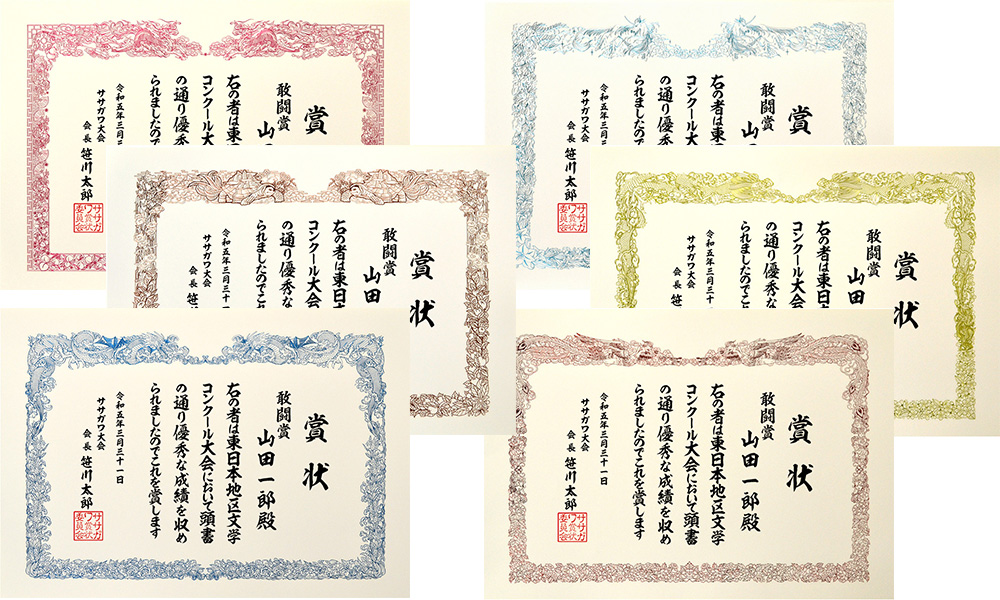 賞
敢闘賞
山
右の者は東
コンクール大会
の通り優秀
られましたので
令和五年三月
ササガワ大会
会長 笹川太郎
ササガ
ワ賞状
委員会
賞
敢闘賞
山
右の者は東
コンクール大会
の通り優秀
られましたので
令和五年三月
ササガワ大会
会長 笹川太郎
ササガ
ワ賞状
委員会
賞状
敢闘賞
山田
右の者は東日本
コンクール大会
の通り優秀な
られましたのでこ
令和五年三月三十一
ササガワ大会
会長 笹
賞状
敢闘賞
山田
右の者は東日本
コンクール大会
の通り優秀な
られましたのでこ
令和五年三月三十一
ササガワ大会
会長 笹
賞状
敢闘賞
山田一郎殿
右の者は東日本地区文学
コンクール大会において頭書
の通り優秀な成績を収め
られましたのでこれを賞します
令和五年三月三十一日
ササガワ大会
会長 笹川太郎
ササガ
ワ賞状
委員会
賞状
敢闘賞
山田一郎殿
右の者は東日本地区文学
コンクール大会において頭書
の通り優秀な成績を収め
られましたのでこれを賞します
令和五年三月三十一日
ササガワ大会
会長 笹川太郎
ササガ
ワ賞状
委員会